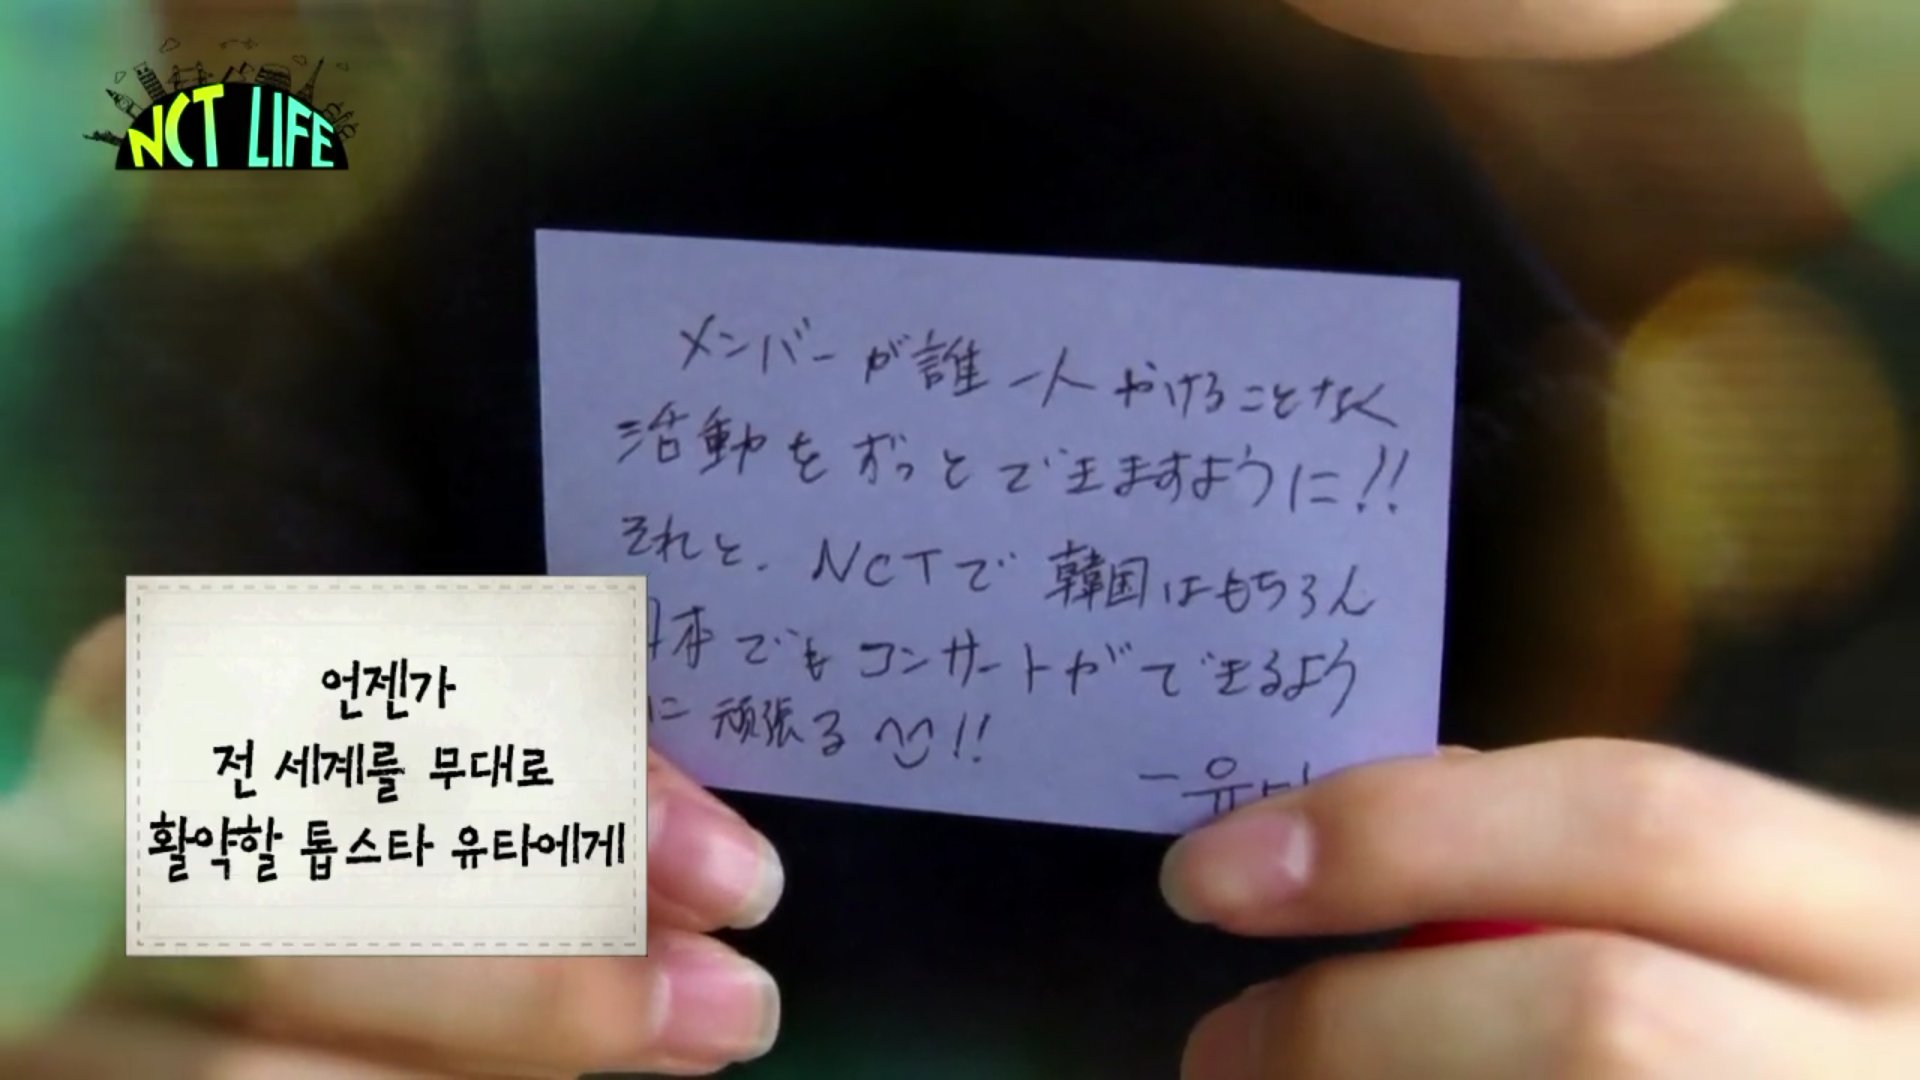 NCT LIFE
メンバーが誰一人かけることなく
活動をずっとできますように!!
それと、NCTで韓国はもちろん
日本でもコンサートができるよう
に頑張る^^!!
- 유타
언젠가
전 세계를 무대로
활약할 톱스타 유타에게